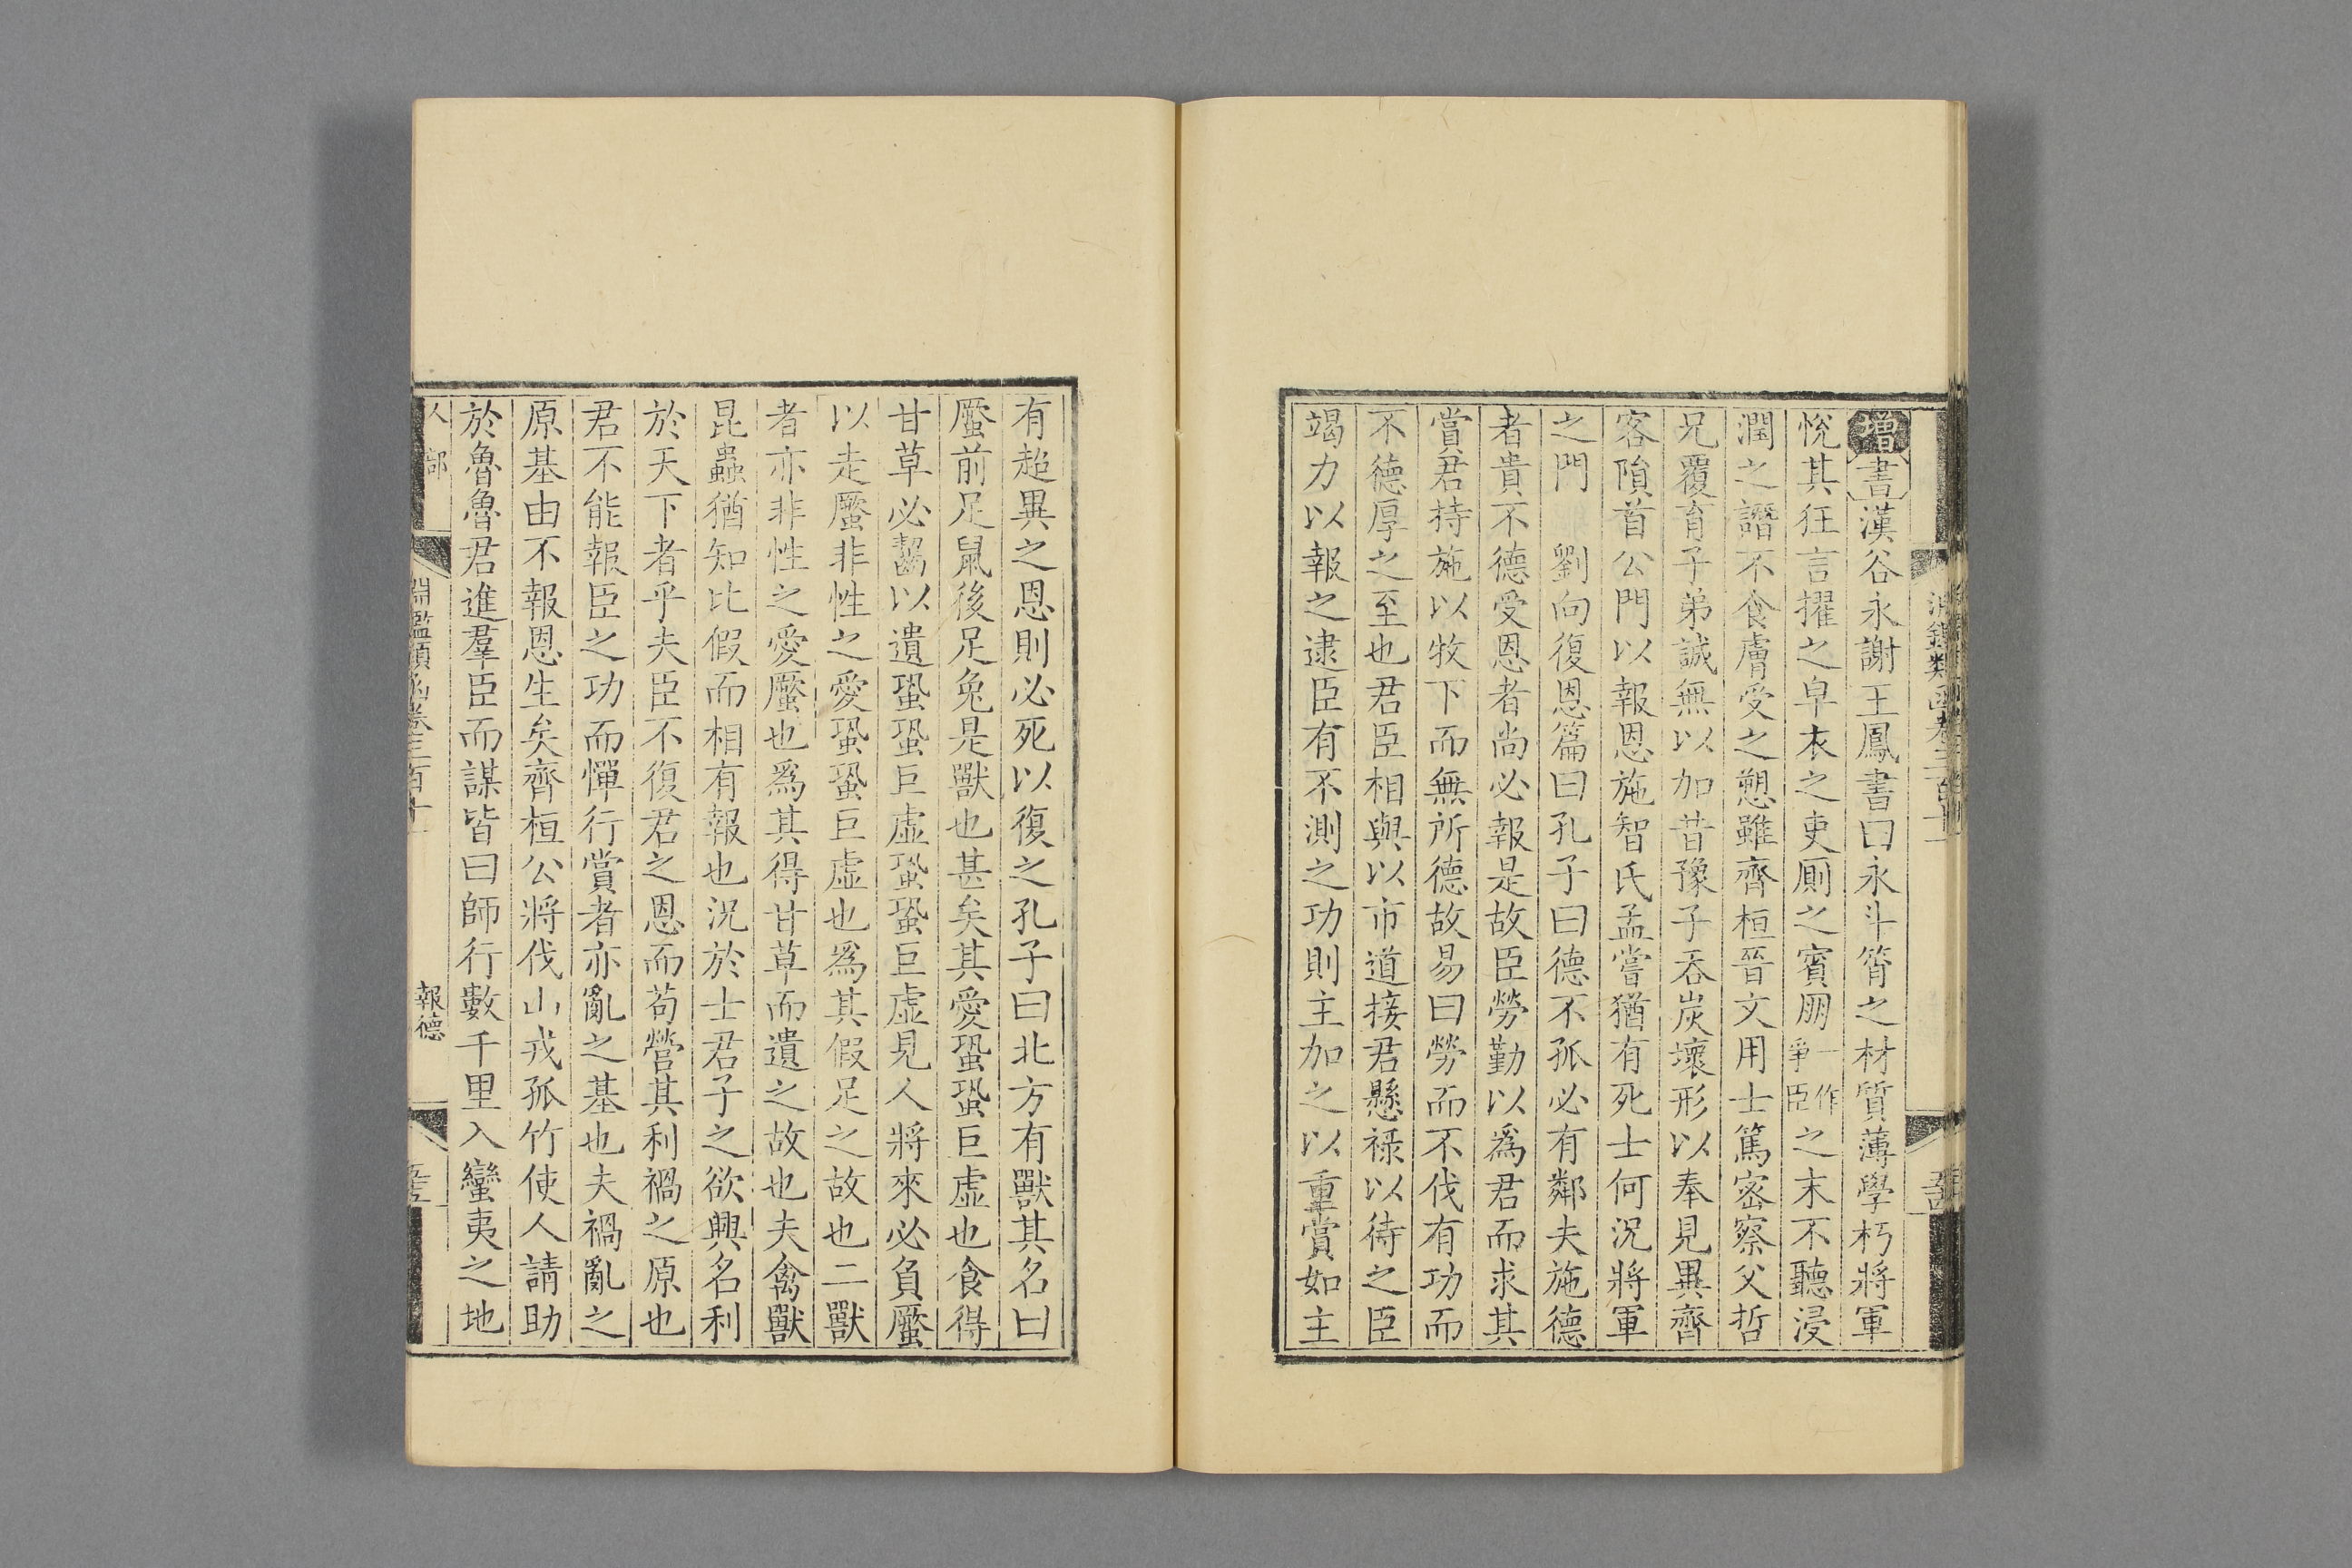 增書漢谷永謝王鳳書曰永斗筲之材質薄學朽將軍
悅其狂言擢之皁衣之吏厠之賓朋一作爭臣之末不聽浸
潤之譖不食膚受之愬雖齊桓晉文用士篤密察父哲
兄覆育子弟誠無以加昔豫子吞炭壞形以奉見異齊
客隕首公門以報恩施智氏孟嘗猶有死士何況將軍
之門 劉向復恩篇曰孔子曰德不孤必有鄰夫施德
者貴不德受恩者尚必報是故臣勞勤以爲君而求其
賞君持施以牧下而無所德故易曰勞而不伐有功而
不德厚之至也君臣相與以市道接君懸祿以待之臣
竭力以報之逮臣有不測之功則主加之以重賞如主
有超異之恩則必死以復之孔子曰北方有獸其名曰
蟨前足鼠後足兔是獸也甚矣其愛蛩蛩巨虛也食得
甘草必齧以遺蛩蛩巨虛蛩蛩巨虛見人將來必負蟨
以走蟨非性之愛蛩蛩巨虛也爲其假足之故也二獸
者亦非性之愛蟨也爲其得甘草而遺之故也夫禽獸
昆蟲猶知比假而相有報也況於士君子之欲興名利
於天下者乎夫臣不復君之恩而苟營其利禍之原也
君不能報臣之功而憚行賞者亦亂之基也夫禍亂之
原基由不報恩生矣齊桓公將伐山戎孤竹使人請助
於魯魯君進羣臣而謀皆曰師行數千里入蠻夷之地
人部 淵鑑類函卷三百十一 報德